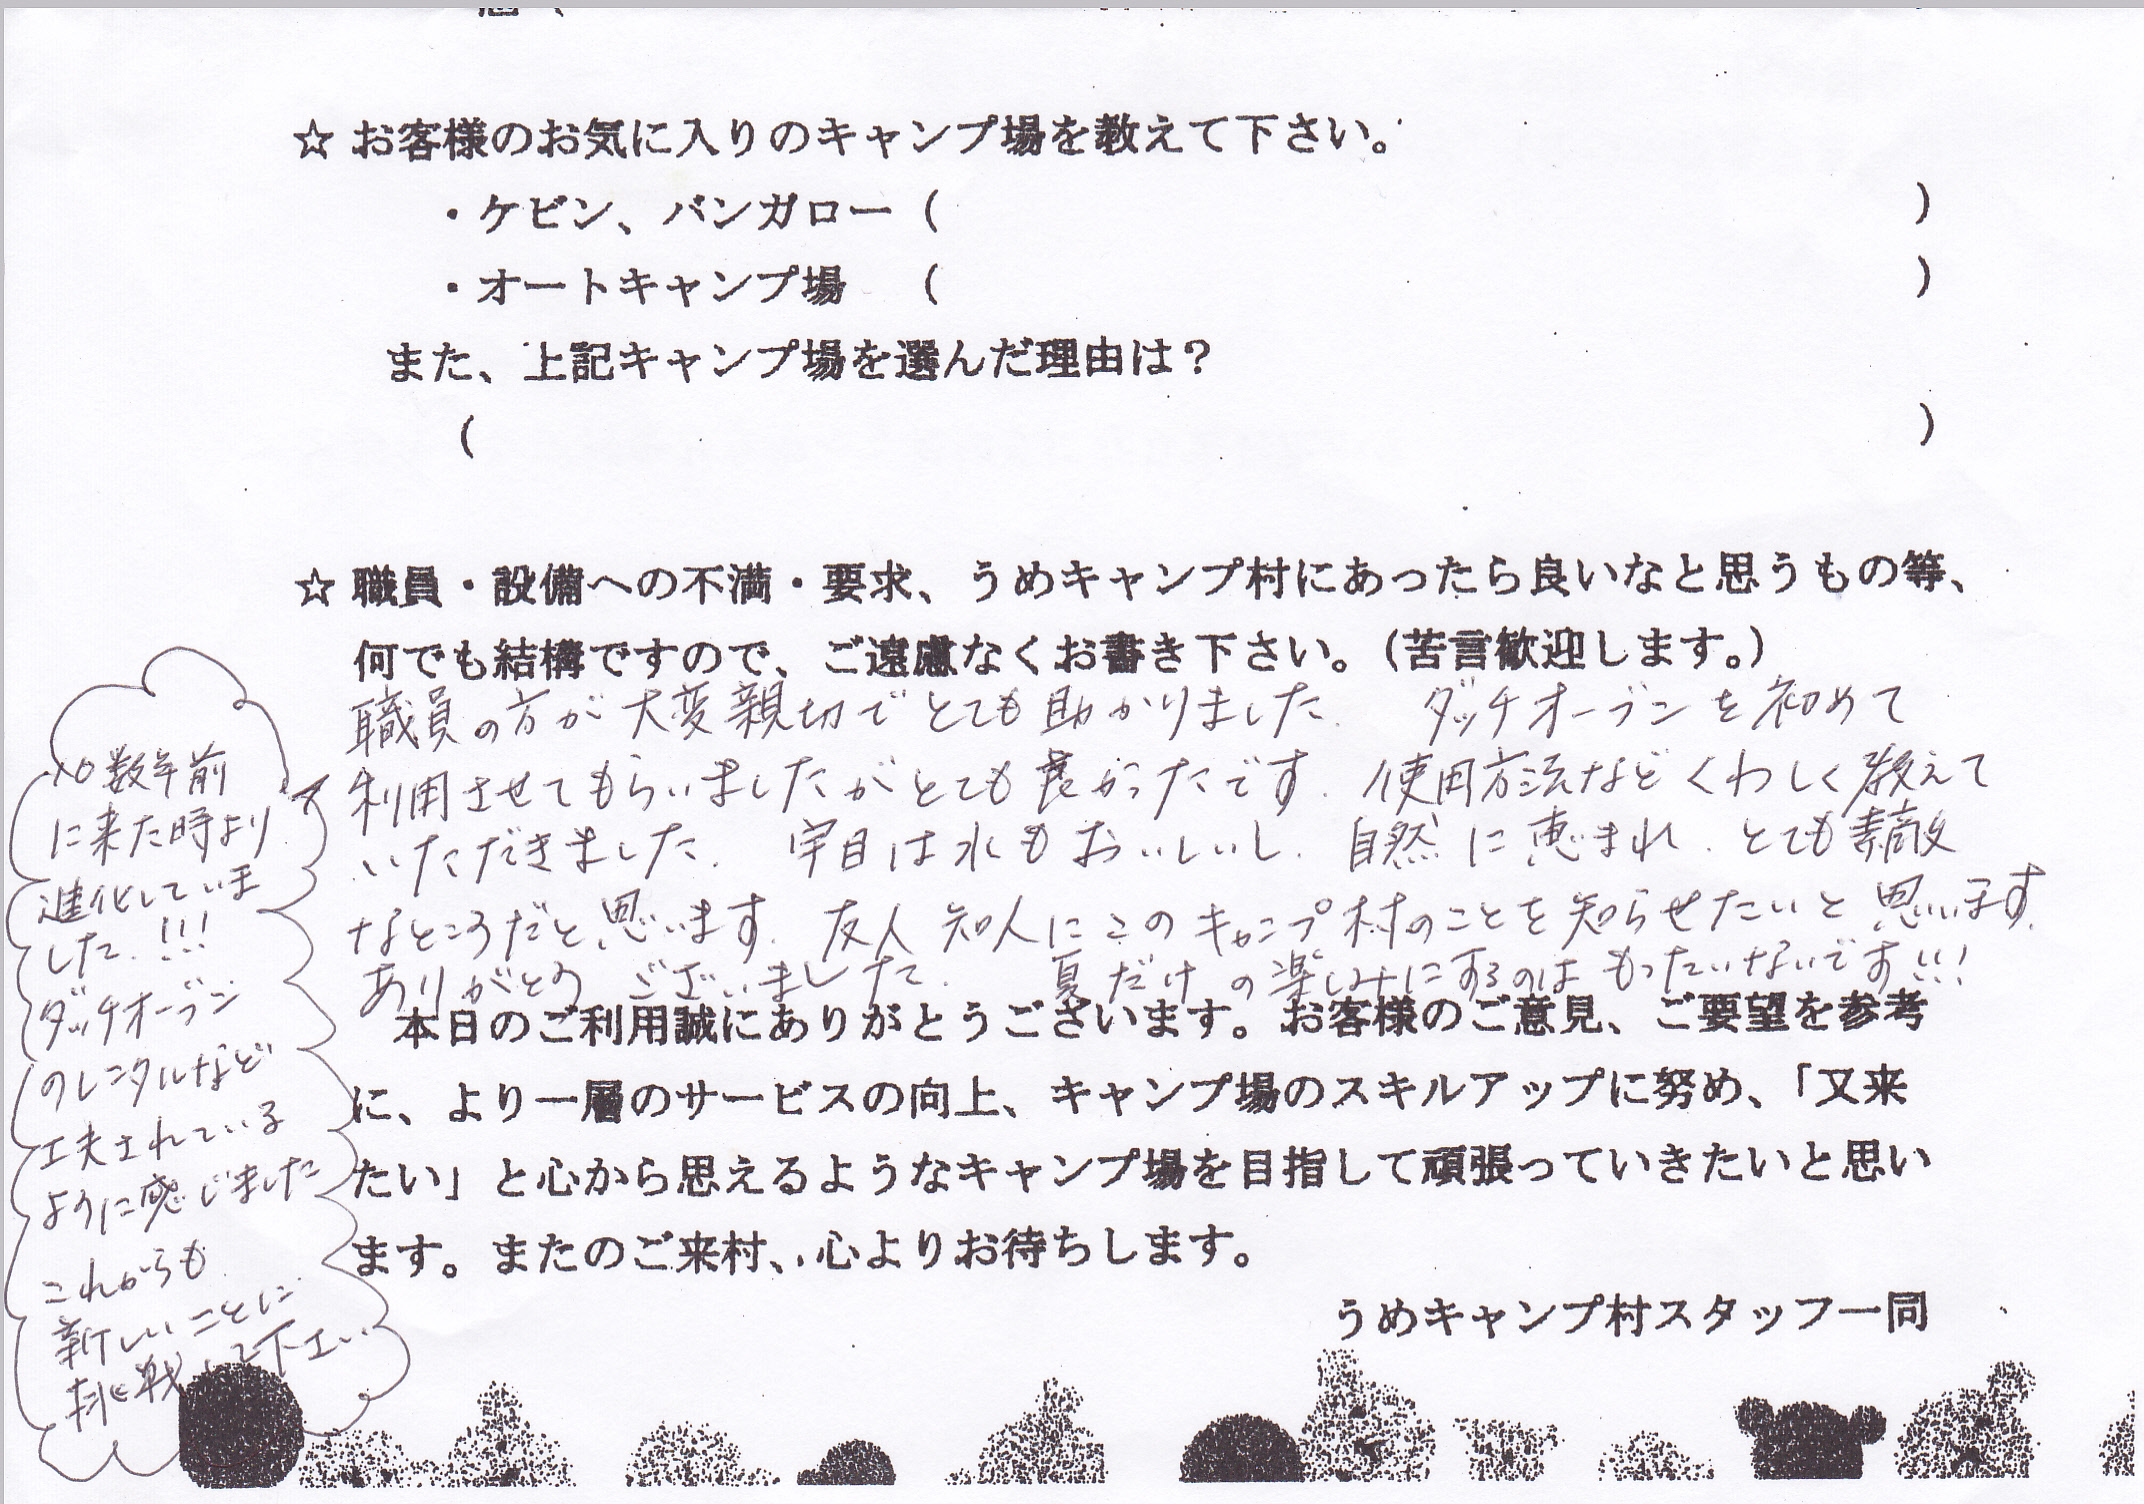 ☆ お客様のお気に入りのキャンプ場を教えて下さい。
・ケビン、バンガロー（　　　）
・オートキャンプ場　（　　　）
また、上記キャンプ場を選んだ理由は？
（　　　）
☆ 職員・設備への不満・要求、うめキャンプ村にあったら良いなと思うもの等、
何でも結構ですので、ご遠慮なくお書き下さい。（苦言歓迎します。）
職員の方が大変親切でとても助かりました。　ダッチオーブンを初めて
利用させてもらいましたがとても良かったです。使用方法などくわしく教えて
いただきました。　宇目は水もおいしいし、自然に恵まれ、とても素敵
なところだと思います。友人 知人にこのキャンプ村のことを知らせたいと思います。
ありがとうございました。　夏だけの楽しみにするのはもったいないです!!!
10数年前
に来た時より
進化していま
した。!!!
ダッチオーブン
のレンタルなど
工夫されている
ように感じました
これからも
新しいことに
挑戦して下さい
本日のご利用誠にありがとうございます。お客様のご意見、ご要望を参考
に、より一層のサービスの向上、キャンプ場のスキルアップに努め、「又来
たい」と心から思えるようなキャンプ場を目指して頑張っていきたいと思い
ます。またのご来村、心よりお待ちします。
うめキャンプ村スタッフ一同